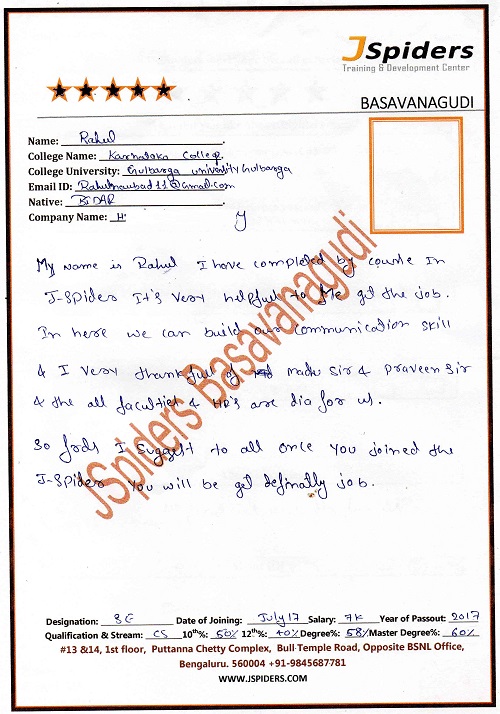 JSpiders
Training & Development Center
BASAVANAGUDI
Name: Rahul
College Name: Karnataka College.
College University: Gulbarga university Gulbarga
Email ID: Rahulnaubad11@gmail.com
Native: BIDAR
Company Name: H y
My name is Rahul I have completed by course In
J-Spider It's very helpful to Me get the job.
In here we can build our communication skill
& I very thankful of Madu Sir & Praveen Sir
& the all faculties & HR's are dia for us.
So I suggest to all once you joined the
J-Spider you will be get definally job.
JSpiders Basavanagudi
Designation: SE Date of Joining: July 17 Salary: 7K Year of Passout: 2017
Qualification & Stream: CS 10th%: 50% 12th%: 40% Degree%: 58% Master Degree%: 60%
#13 &14, 1st floor, Puttanna Chetty Complex, Bull Temple Road, Opposite BSNL Office,
Bengaluru. 560004 +91-9845687781
WWW.JSPIDERS.COM